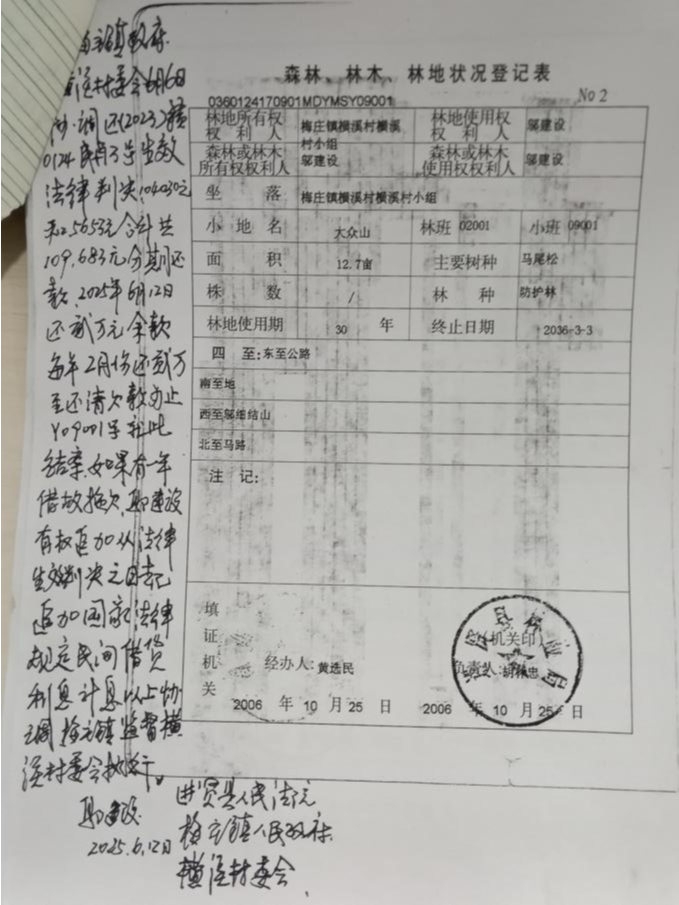 森林、林木、林地状况登记表
0360124170901MDYMSY09001
No 2
林地所有权权利人 梅庄镇横溪村横溪村小组 林地使用权权利人 邬建设
森林或林木所有权权利人 邬建设 森林或林木使用权权利人 邬建设
坐落 梅庄镇横溪村横溪村小组
小地名 大众山 林班 02001 小班 09001
面积 12.7亩 主要树种 马尾松
株数 / 林种 防护林
林地使用期 30 年 终止日期 2036-3-3
四 至:东至公路
南至地
西至邬细结山
北至马路
注 记:
填证机关
经办人:黄选民
机关印
负责人:胡 忠
2006 年 10 月 25 日 2006 年 10 月 25 日
镇政府
村委会6月6日
协调 (2023)赣
0124民 号生效
法律判决104030元
5653元合计共
109,683元分期还
款,2025年6月12日
还贰万元余款
每年2月份还贰万
至还清欠款为止
Y09001 到此
结案,如果有一年
借故拖欠,邬建设
有权追加从法律
生效判决之日起
追加国家法律
规定民间借贷
利息计息以上协
调 梅庄镇监督横
溪村委会执行。
邬建设
2025.6.12日
进贤县人民法院
梅庄镇人民政府
横溪村委会